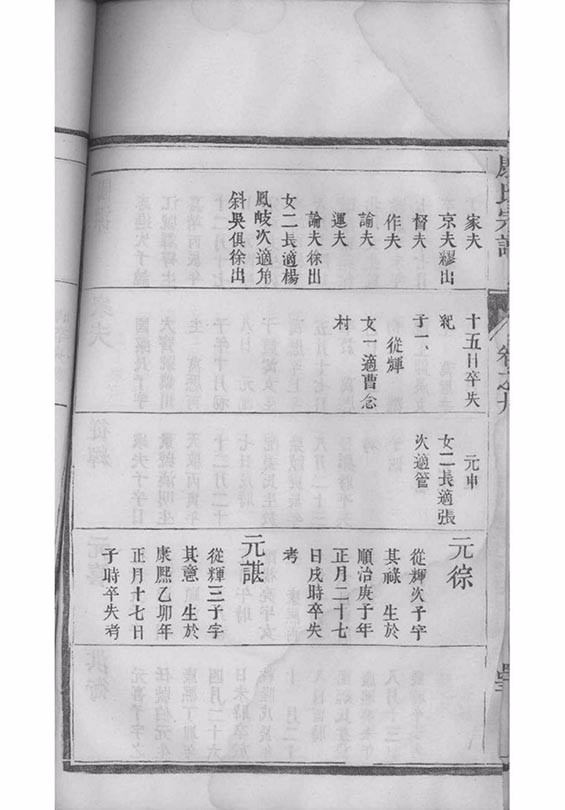 氏宗譜
卷之九
家夫
京夫繆出
督夫
作夫
諭夫
運夫
論夫徐出
女二長適楊
鳳岐次適角
斜吳俱徐出
十五日卒失
紀
子一、
從輝
女一適曹念
村
元申
女二長適張
次適管
元綜
從輝次子字
其祿 生於
順治庚子年
正月二十七
日戌時卒失
考
元諶
從輝三子字
其意 生於
康熙乙卯年
正月十七日
子時卒失考